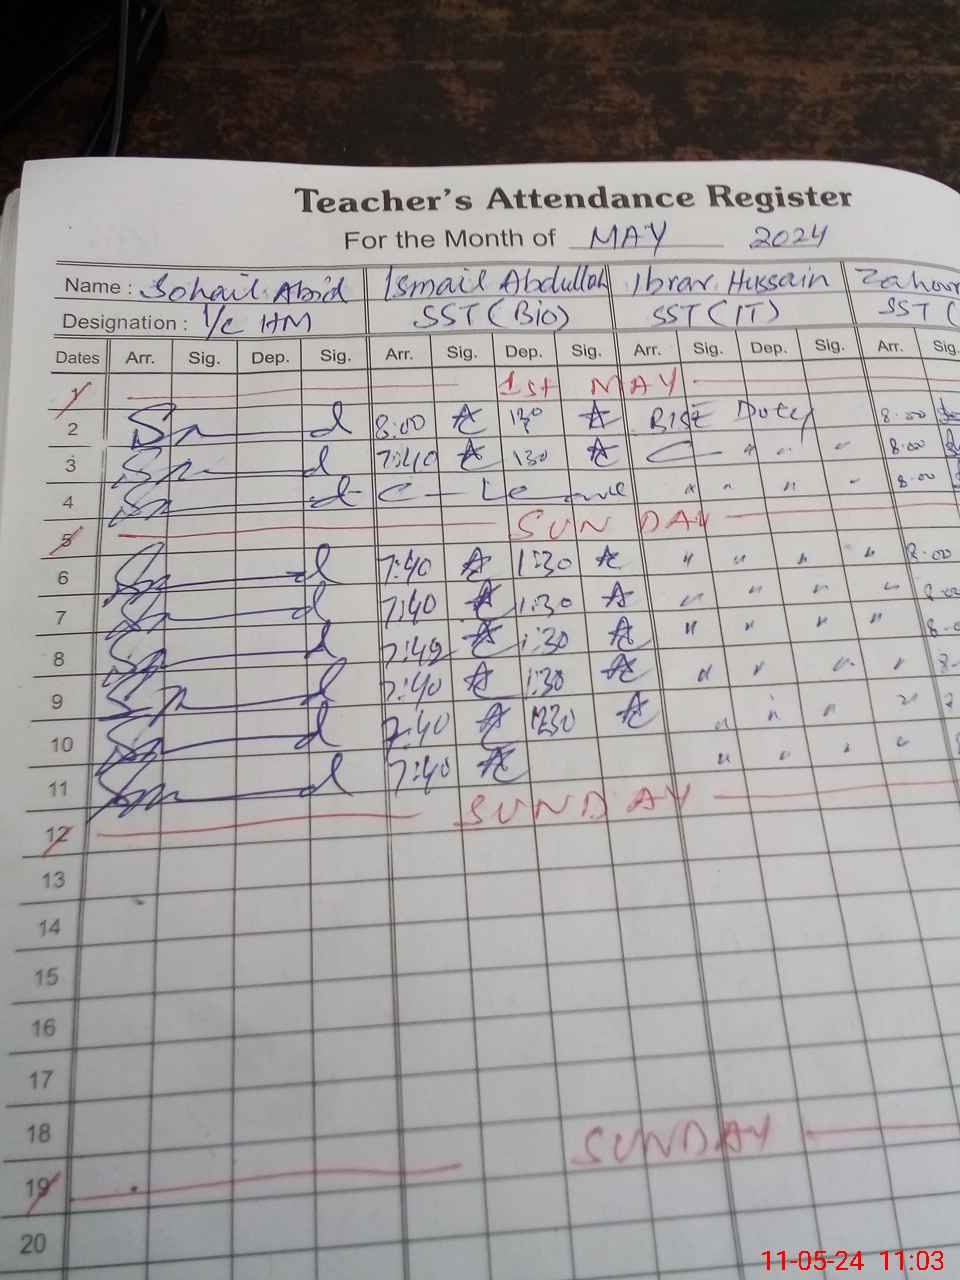 Teacher's Attendance Register
For the Month of MAY 2024
Name : Sohail Abid Ismail Abdullah Ibrar Hussain Zahour
Designation : I/C HM SST (Bio) SST (IT) SST (
Dates Arr. Sig. Dep. Sig. Arr. Sig. Dep. Sig. Arr. Sig. Dep. Sig. Arr. Sig.
1 1st MAY
2 8:00 130 BISE Duty 8:00
3 7:40 130 " " " 8:00
4 C - Leave " " " " 8:00
5 SUNDAY
6 7:40 1:30 " " " " 8:00
7 7:40 1:30 " " " " 8:00
8 7:40 1:30 " " " " 8:0
9 7:40 1:30 " " " " 8
10 7:40 1230 " " " "
11 7:40 " " " "
12 SUNDAY
13
14
15
16
17
18
19 SUNDAY
20
11-05-24 11:03